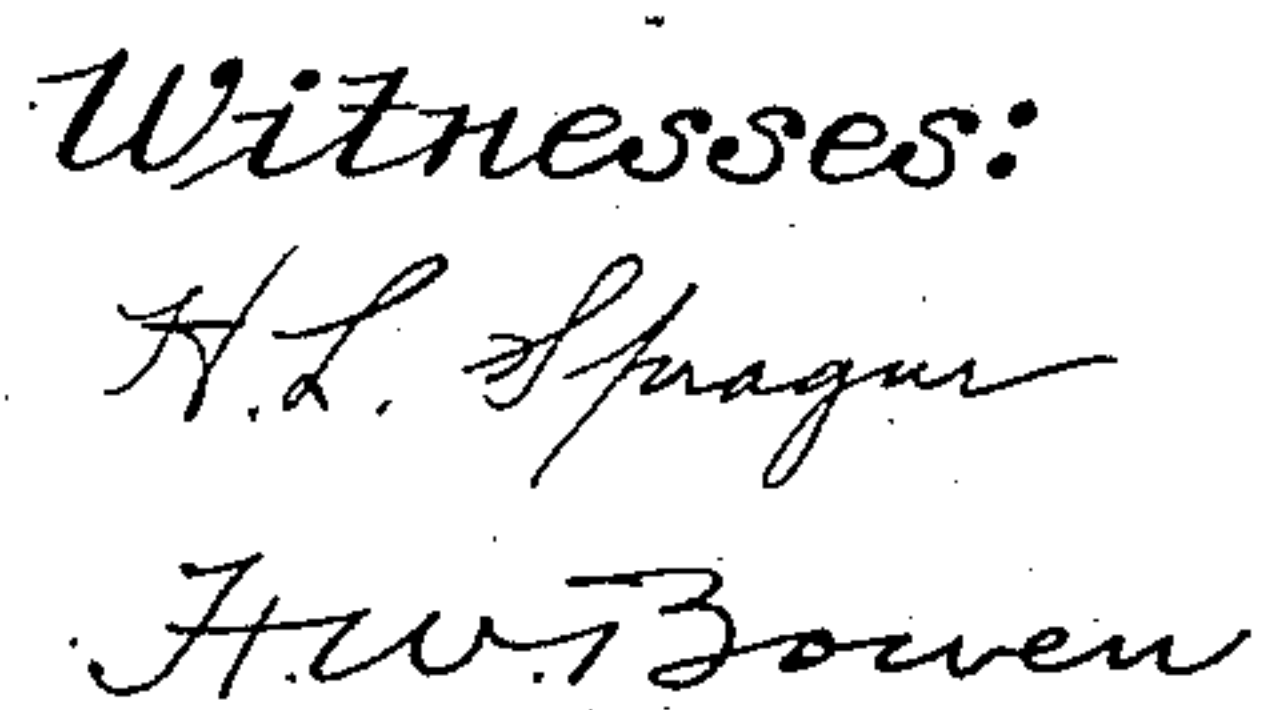 Witnesses:
H. L. Sprague
H. W. Bowen